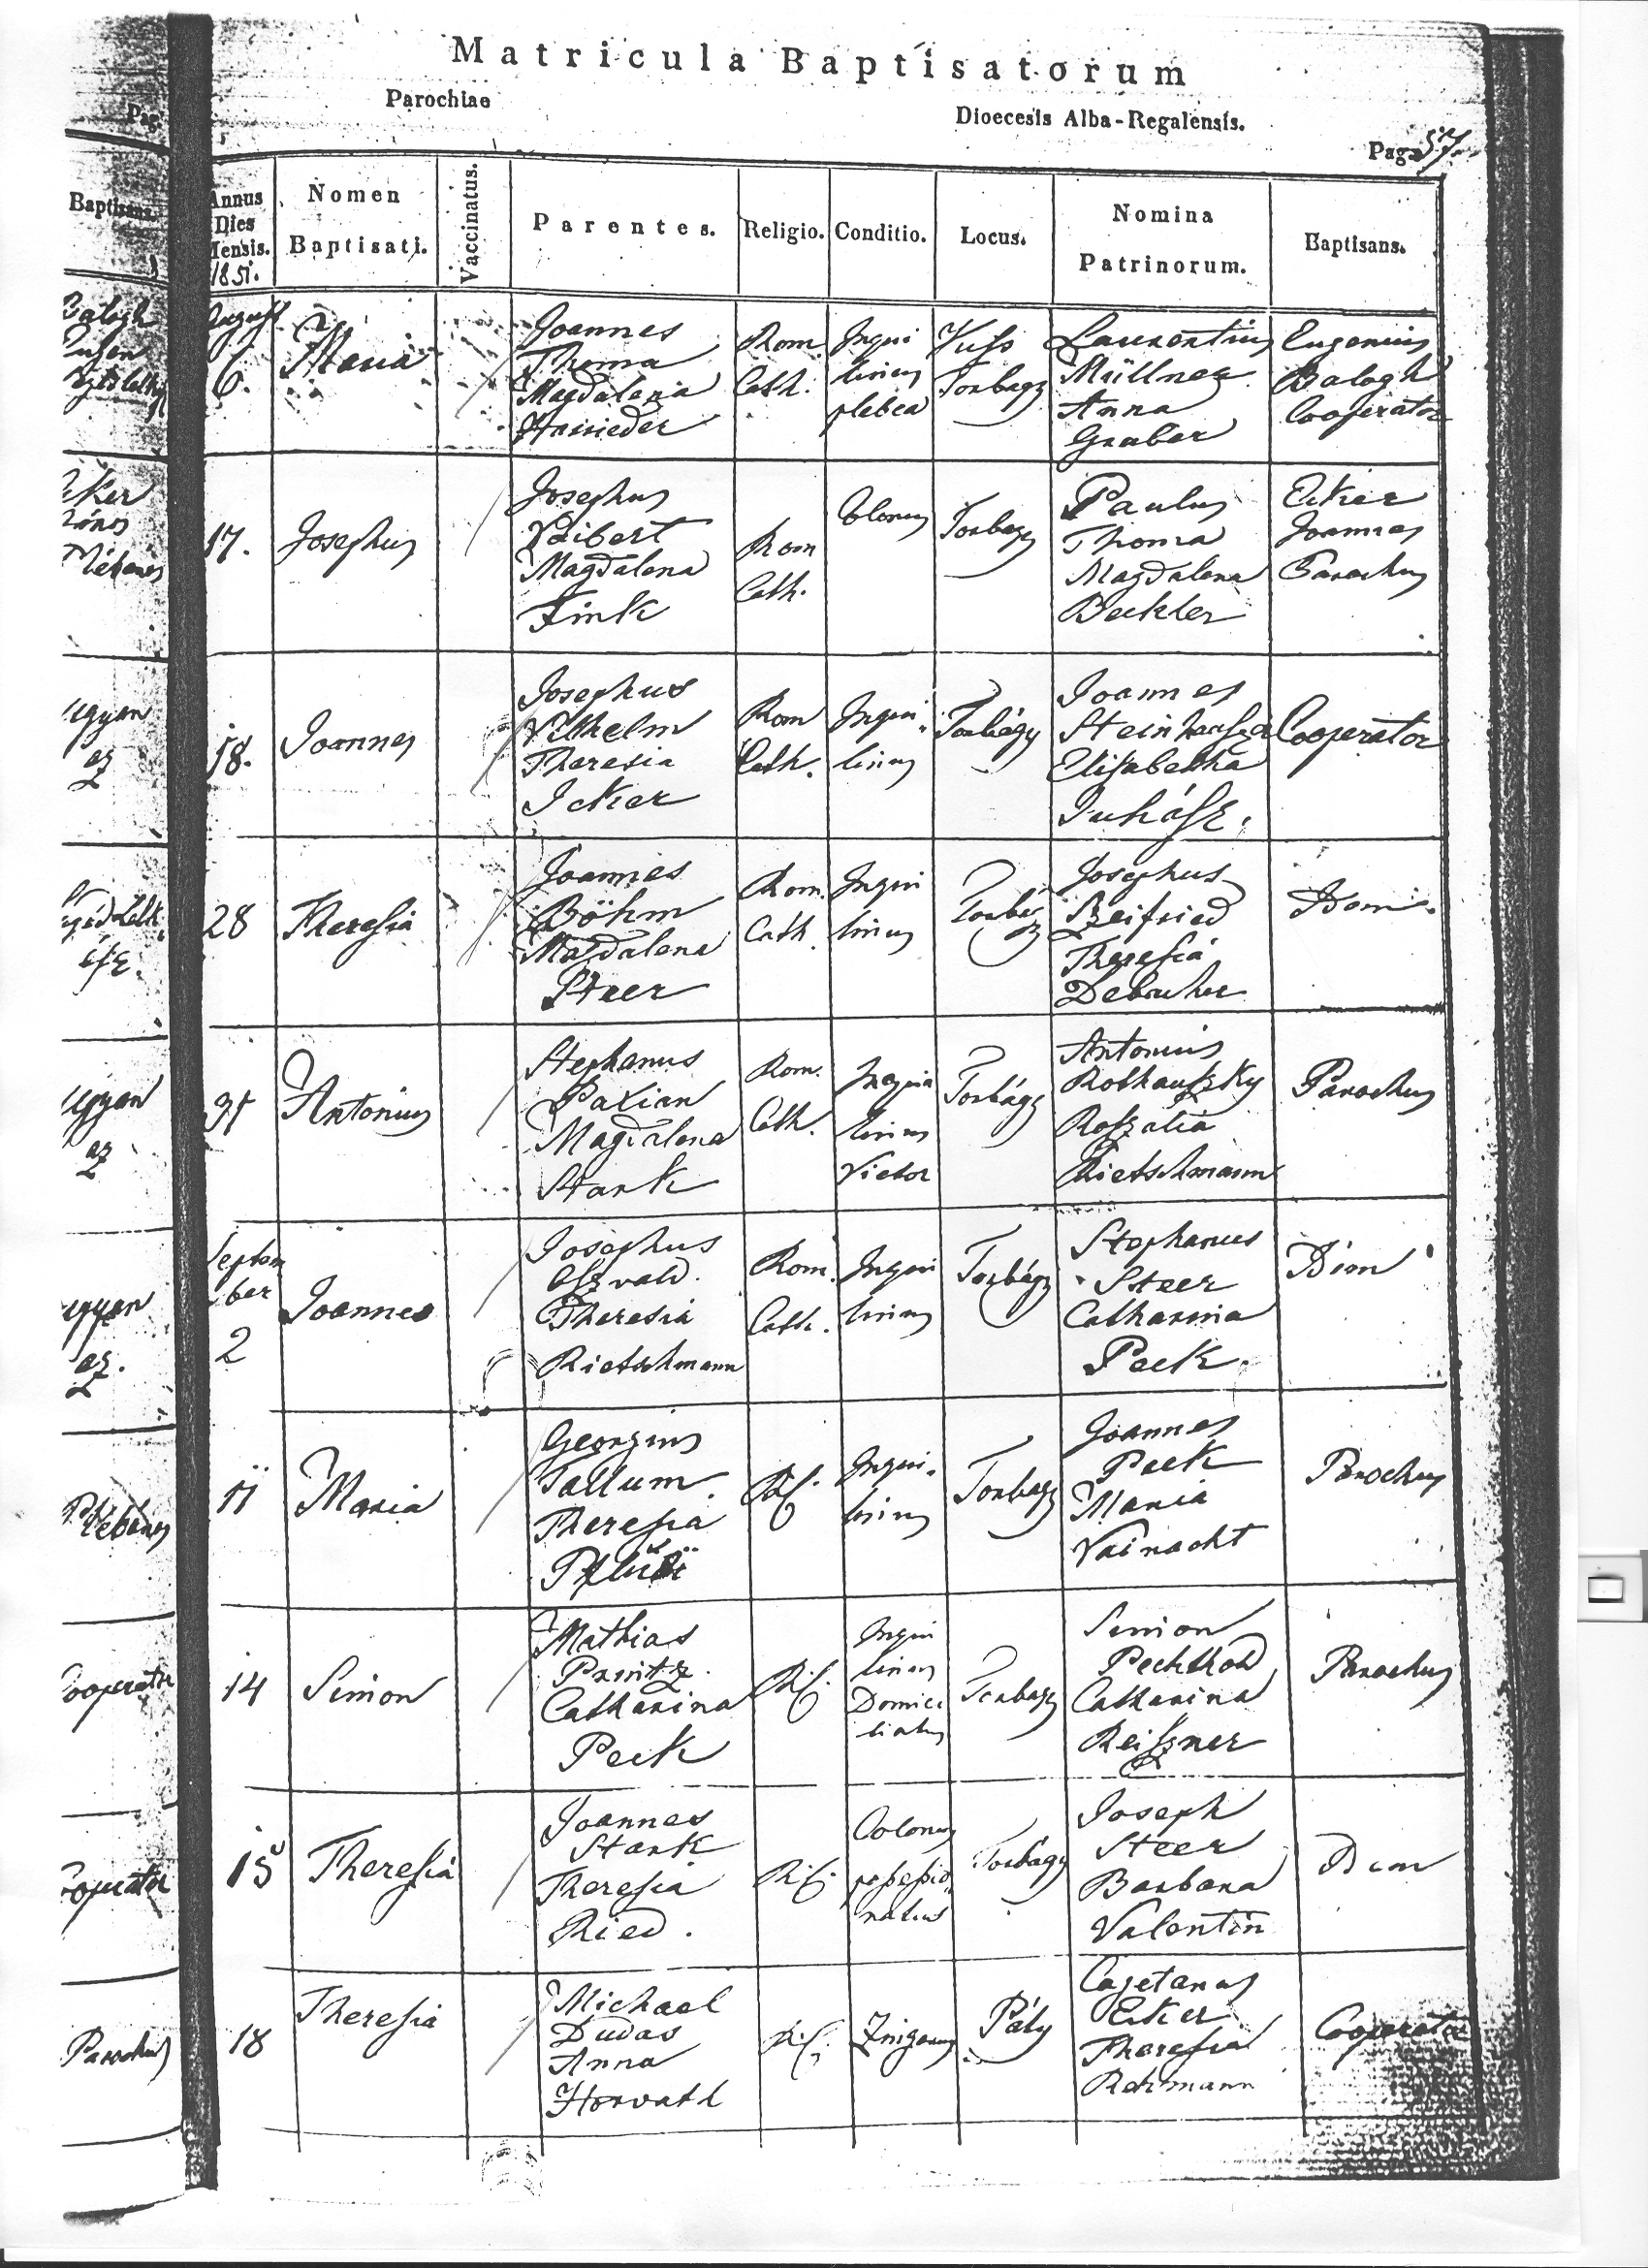 Matricula Baptisatorum
Parochiae
Dioecesis Alba-Regalensis.
Pag. 57
Pag.
Baptisans.
Annus Dies Mensis. 1851.
Nomen Baptisati.
Vaccinatus.
Parentes.
Religio.
Conditio.
Locus.
Nomina Patrinorum.
Baptisans.
August
6.
Maria
Joannes
Thoma
Magdalena
Rom.
Cath.
Inqui
linus
plebea
Torbagy
Laurentius
Müllner
Anna
Graber
Eugenius
Balogh
Cooperator
17.
Josephus
Josephus
Veibert
Magdalena
Fink
Rom
Cath.
Colonus
Torbagy
Paulus
Thoma
Magdalena
Beckler
Ecker
Joannes
Parochus
18.
Joannes
Josephus
Vilhelm
Theresia
Icker
Rom
Cath.
Inqui
linus
Torbágy
Joannes
Elisabetha
Juhász.
Cooperator
28
Theresia
Joannes
Böhm
Magdalena
Steer
Rom.
Cath.
Inqui
linus
Torbágy
Josephus
Seifried
Theresia
Idem.
31
Antonius
Stephanus
Paxian
Magdalena
Stark
Rom.
Cath.
Inqui
linus
Vietor
Torbágy
Antonius
Rothauszky
Roszalia
Rietschmann
Parochus
Septem
ber
2
Joannes
Josephus
Oszvald.
Theresia
Rietschmann
Rom.
Cath.
Inqui
linus
Torbágy
Stephanus
Steer
Catharina
Peck.
Idem
11
Maria
Georgius
Tallum.
Theresia
R.C.
Inqui.
linus
Torbagy
Joannes
Peck
Maria
Vainacht
Parochus
14
Simon
Mathias
Catharina
Peck
R.C.
Inqui
linus
Domici
liatus
Torbagy
Simon
Pechthold
Catharina
Reiszner
Parochus
15
Theresia
Joannes
Stark
Theresia
Ried.
R.C.
Colonus
possessio
natus
Torbágy
Joseph
Steer
Barbara
Valentin
Idem
18
Theresia
Michael
Dudas
Anna
Horvath
R.C.
Zingarus
Páty
Cajetanus
Ecker
Theresia
Rehmann
Cooperator